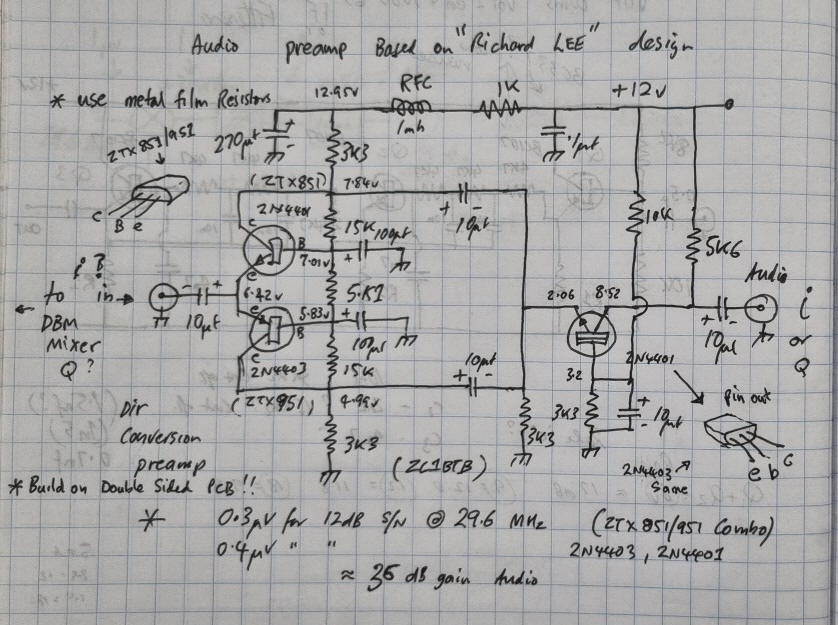 Audio preamp Based on "Richard LEE" design
* use metal film Resistors
12.95V RFC 1K +12V
1mh
270µf + -
3K3
.1µf
ZTX851/951
C B e
(ZTX851) 7.84V
2N4401
+ - 10µf
15K 100µf
C B e
7.01V + -
10K
5K6
Audio
i
or
Q
i?
to in →
DBM
Mixer
Q?
- +
10µf
6.42V
5.K1
5.83V +
100µf
e B C
2N4403
15K
10µf
+ -
(ZTX951) 4.99V
2.06 8.52
+ -
10µf
2N4401
3.2
3K3
+ - 10µf
pin out
e b c
2N4403
Same
Dir
Conversion
preamp
3K3
3K3
(ZL1BTB)
* Build on Double Sided PCB!!
* 0.3µV for 12dB S/N @ 29.6 MHz (ZTX851/951 Combo)
0.4µV " " 2N4403, 2N4401
≈ 36 dB gain Audio